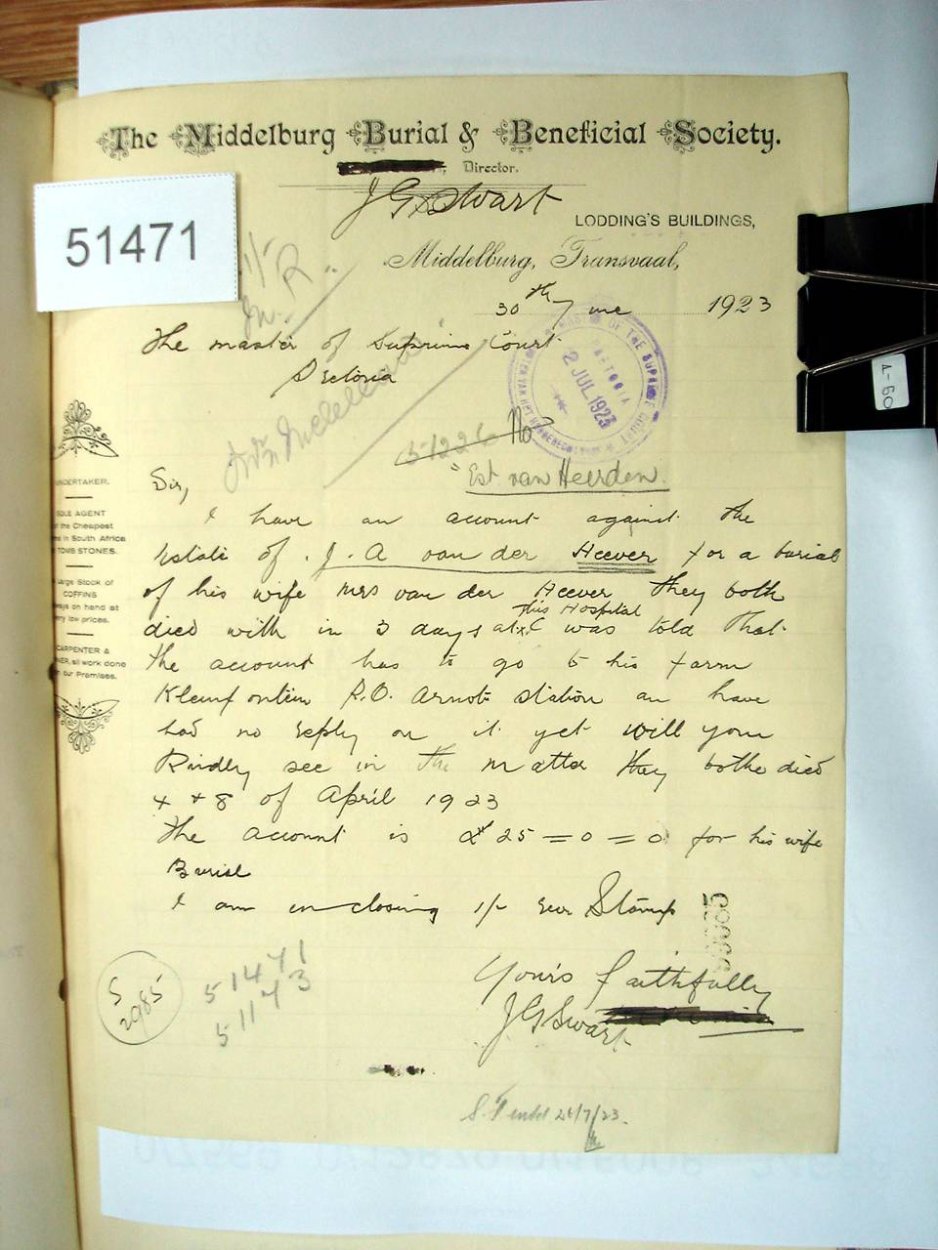 The Middelburg Burial & Beneficial Society.
Director.
J G Swart
LODDING'S BUILDINGS,
51471
Middelburg, Transvaal,
30th June 1923
The master of Suprime Court
Pretoria
2 JUL 1923
51226 No
Est van Heerden.
Sir,
I have an account against the
Estate of J. A van der Heever for a burial
of his wife mrs van der Heever they both
this Hospital
died with in 3 days at I was told that
the account has to go to his farm
Kleinfontein P.O. Arnot station an have
had no reply on it yet will you
Kindly see in the matter they bothe died
4 & 8 of April 1923
The account is £25=0=0 for his wife
Burial
I am enclosing 1/- rev Stamp
Yours faithfully
J G Swart
UNDERTAKER.
SOLE AGENT
the Cheapest
in South Africa
TOMB STONES.
Large Stock of
COFFINS
on hand at
low prices.
CARPENTER &
all work done
our Premises.
5
2985
51471
51173
A-60